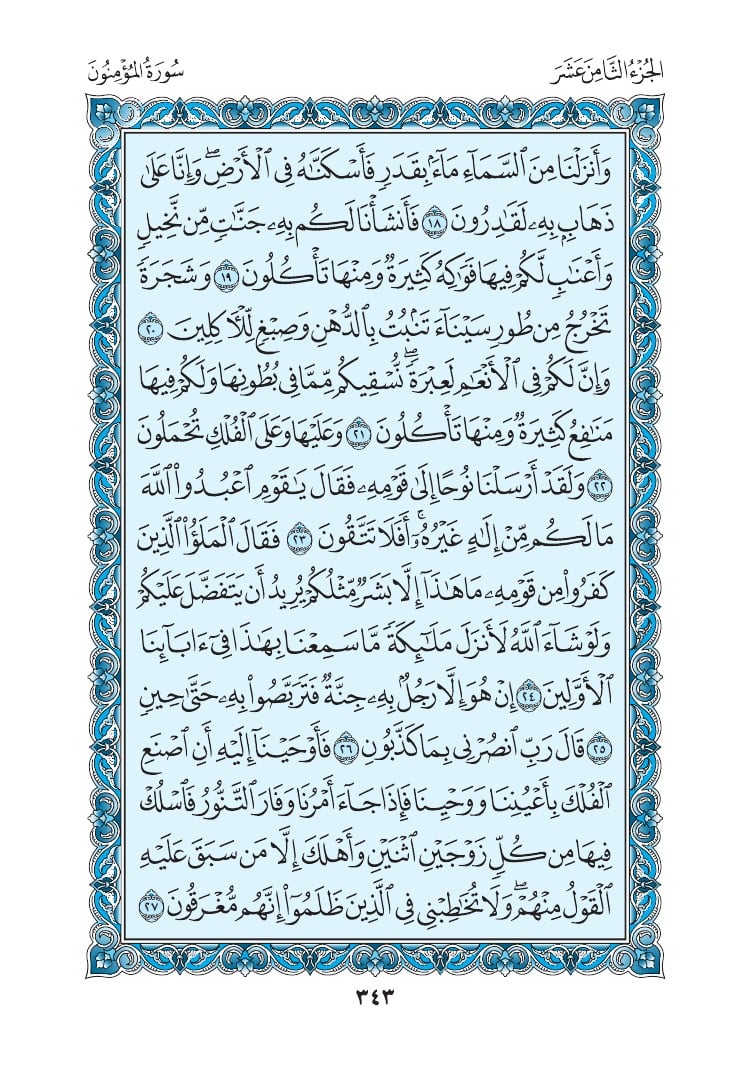 الجُزْءُ الثَّامِنَ عَشَرَ
سُورَةُ المُؤْمِنُونَ
وَأَنزَلْنَا مِنَ ٱلسَّمَآءِ مَآءَۢ بِقَدَرٖ فَأَسْكَنَّٰهُ فِي ٱلْأَرْضِۖ وَإِنَّا عَلَىٰ
ذَهَابِۭ بِهِۦ لَقَٰدِرُونَ ١٨ فَأَنشَأْنَا لَكُم بِهِۦ جَنَّٰتٖ مِّن نَّخِيلٖ
وَأَعْنَٰبٖ لَّكُمْ فِيهَا فَوَٰكِهُ كَثِيرَةٞ وَمِنْهَا تَأْكُلُونَ ١٩ وَشَجَرَةٗ
تَخْرُجُ مِن طُورِ سَيْنَآءَ تَنۢبُتُ بِٱلدُّهْنِ وَصِبْغٖ لِّلْأٓكِلِينَ ٢٠
وَإِنَّ لَكُمْ فِي ٱلْأَنْعَٰمِ لَعِبْرَةٗۖ نُّسْقِيكُم مِّمَّا فِي بُطُونِهَا وَلَكُمْ فِيهَا
مَنَٰفِعُ كَثِيرَةٞ وَمِنْهَا تَأْكُلُونَ ٢١ وَعَلَيْهَا وَعَلَى ٱلْفُلْكِ تُحْمَلُونَ
٢٢ وَلَقَدْ أَرْسَلْنَا نُوحًا إِلَىٰ قَوْمِهِۦ فَقَالَ يَٰقَوْمِ ٱعْبُدُواْ ٱللَّهَ
مَا لَكُم مِّنْ إِلَٰهٍ غَيْرُهُۥٓۚ أَفَلَا تَتَّقُونَ ٢٣ فَقَالَ ٱلْمَلَؤُاْ ٱلَّذِينَ
كَفَرُواْ مِن قَوْمِهِۦ مَا هَٰذَآ إِلَّا بَشَرٞ مِّثْلُكُمْ يُرِيدُ أَن يَتَفَضَّلَ عَلَيْكُمْ
وَلَوْ شَآءَ ٱللَّهُ لَأَنزَلَ مَلَٰٓئِكَةٗ مَّا سَمِعْنَا بِهَٰذَا فِيٓ ءَابَآئِنَا
ٱلْأَوَّلِينَ ٢٤ إِنْ هُوَ إِلَّا رَجُلُۢ بِهِۦ جِنَّةٞ فَتَرَبَّصُواْ بِهِۦ حَتَّىٰ حِينٖ
٢٥ قَالَ رَبِّ ٱنصُرْنِي بِمَا كَذَّبُونِ ٢٦ فَأَوْحَيْنَآ إِلَيْهِ أَنِ ٱصْنَعِ
ٱلْفُلْكَ بِأَعْيُنِنَا وَوَحْيِنَا فَإِذَا جَآءَ أَمْرُنَا وَفَارَ ٱلتَّنُّورُ فَٱسْلُكْ
فِيهَا مِن كُلّٖ زَوْجَيْنِ ٱثْنَيْنِ وَأَهْلَكَ إِلَّا مَن سَبَقَ عَلَيْهِ
ٱلْقَوْلُ مِنْهُمْۖ وَلَا تُخَٰطِبْنِي فِي ٱلَّذِينَ ظَلَمُوٓاْ إِنَّهُم مُّغْرَقُونَ ٢٧
٣٤٣